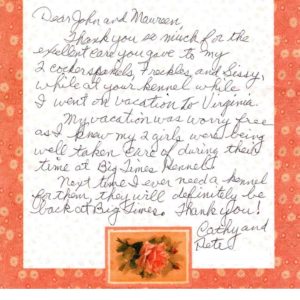 Dear John and Maureen,
Thank you so much for the
excellent care you gave to my
2 cocker spaniels, Freckles, and Sissy,
while at your kennel while
I went on vacation to Virginia.
My vacation was worry free
as I knew my 2 girls were being
well taken care of during their
time at Big Times Kennels
Next time I ever need a kennel
for them, they will definitely be
back at Big Times. Thank you!
Cathy and
Pete